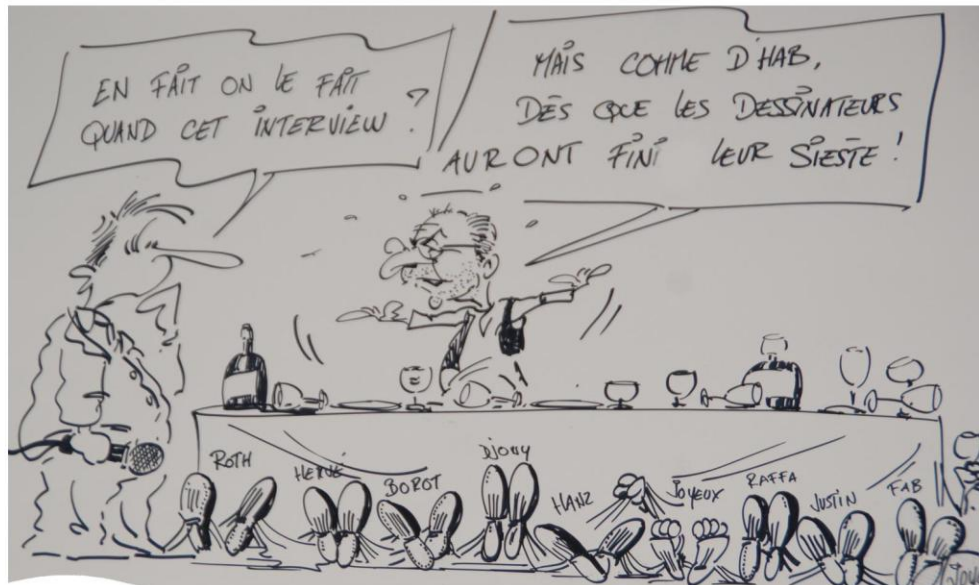 EN FAIT ON LE FAIT
QUAND CET INTERVIEW ?
MAIS COMME D'HAB,
DÈS QUE LES DESSINATEURS
AURONT FINI LEUR SIESTE !
ROTH
HERVÉ
BOROT
DJONY
HANZ
JOYEUX
RAFFA
JUSTIN
FAB